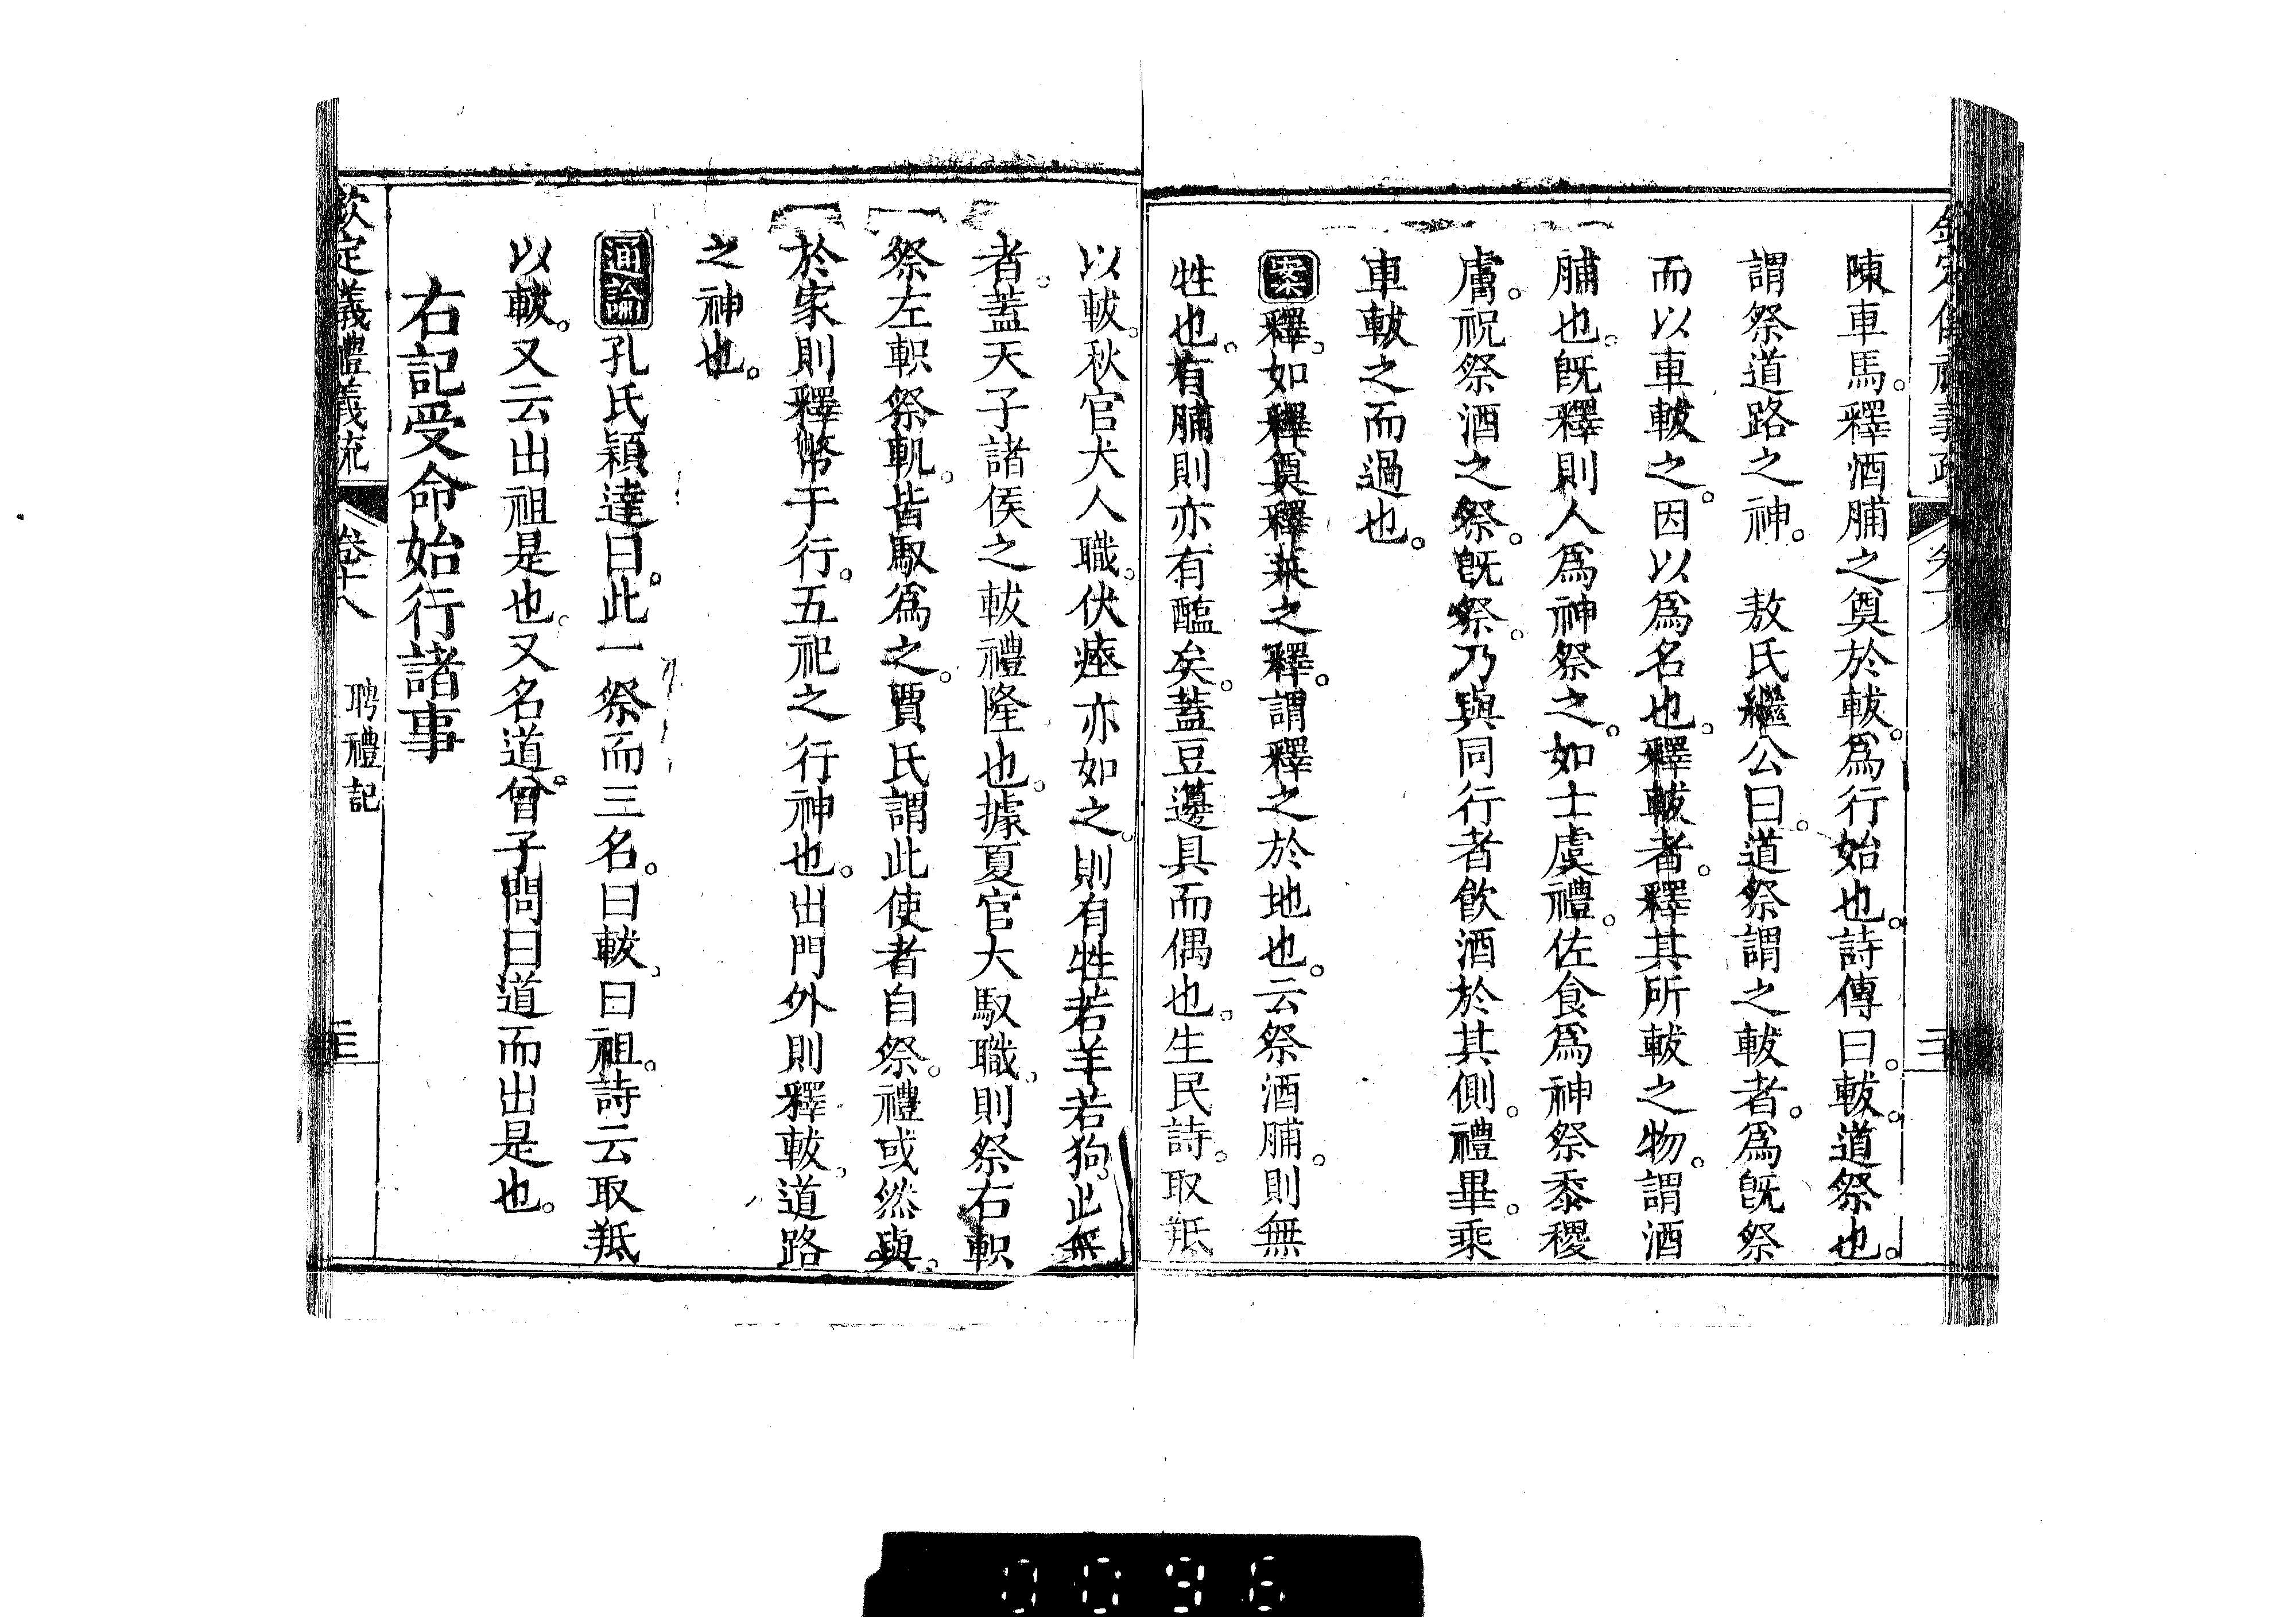 陳車馬。釋酒脯之奠於軷。爲行始也。詩傳曰。軷。道祭也。
謂祭道路之神。 敖氏繼公曰。道祭謂之軷者。爲旣祭
而以車軷之。因以爲名也。釋軷者。釋其所軷之物。謂酒
脯也。旣釋則人爲神祭之。如士虞禮。佐食爲神祭黍稷
膚。祝祭酒之祭。旣祭。乃與同行者飮酒於其側。禮畢。乘
車軷之而過也。
案釋。如釋奠釋菜之釋。謂釋之於地也。云祭酒脯。則無
牲也。有脯則亦有醢矣。蓋豆籩具而偶也。生民詩。取羝
以軷。秋官犬人職。伏瘞亦如之。則有牲若羊若狗。此無
者。蓋天子諸侯之軷禮隆也。據夏官大馭職。則祭右軹
祭左軹祭軓。皆馭爲之。賈氏謂此使者自祭。禮或然與。
於家則釋幣于行。五祀之行神也。出門外則釋軷。道路
之神也。
通論孔氏穎達曰。此一祭而三名。曰軷。曰祖。詩云取羝
以軷。又云出祖是也。又名道。曾子問曰道而出是也。
右記受命始行諸事
欽定義禮義疏 卷十八 聘禮記 三
0096